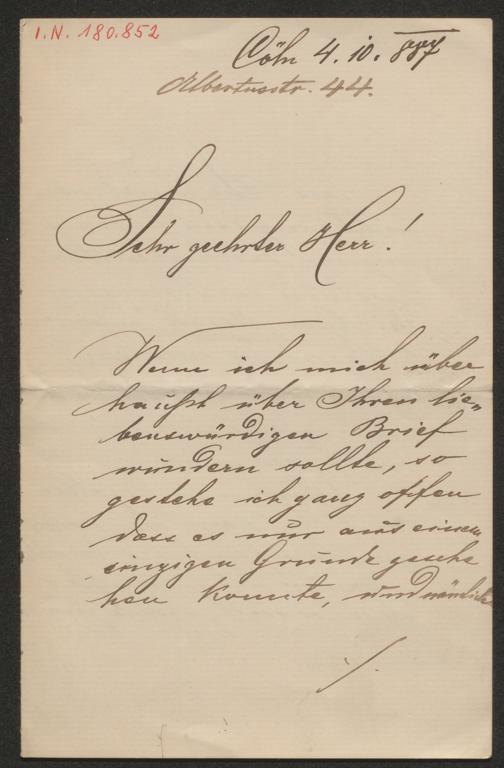 I.N. 180.852
Cöln 4. 10. 887
Albertusstr. 44.
Sehr geehrter Herr!
Wenn ich mich über
haupt über Ihren lie-
benswürdigen Brief
wundern sollte, so
gestehe ich ganz offen
dass es nur aus einem
einzigen Grunde gesche
hen konnte, und nämlich
./.